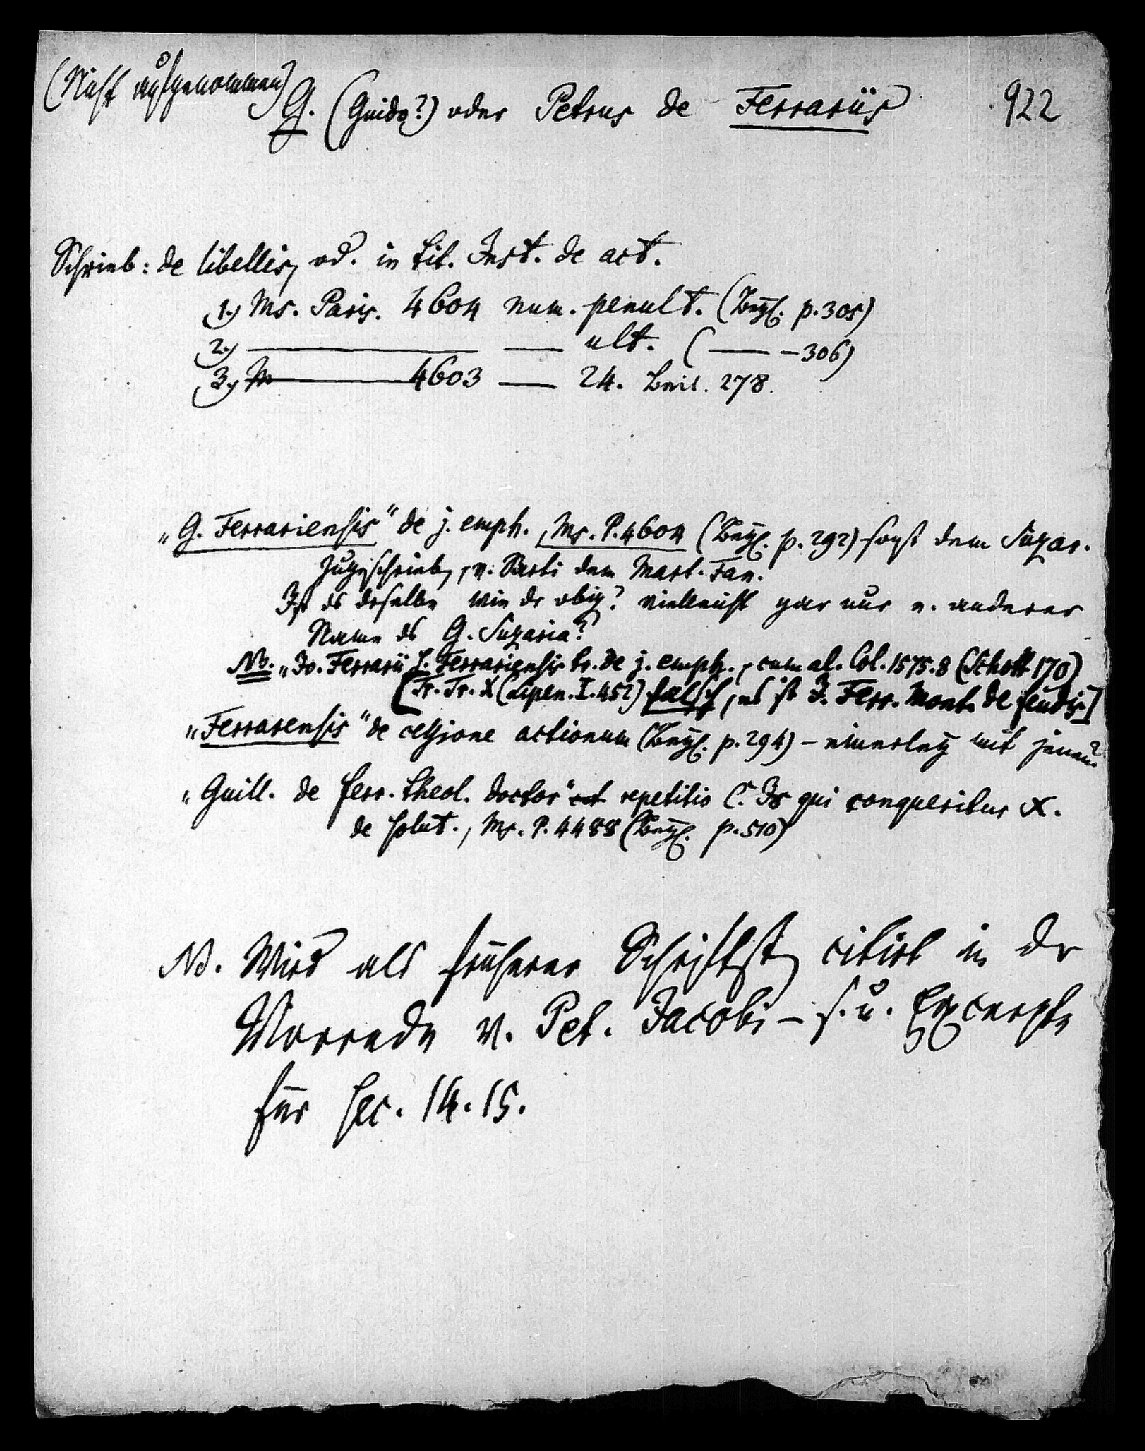 (Nicht aufgenommen)
G. (Guido?) oder Petrus de Ferrariis
922
Schrieb: de libellis, od. in tit. Inst. de act.
1.) Ms. Paris. 4604 num. penult. (Beyl. p. 305)
2.) ——— — ult. ( — — 306)
3.) M——— 4603 — 24. 278.
„G. Ferrariensis" de j. emph., Ms. P. 4604 (Beyl. p. 292) sonst dem Suzar.
zugeschrieb, v. Sarti dem Mart. Fan.
Ist ds derselbe wie dr obig? vielleicht gar nur e. anderer
Name ds G. Suzaria?
NB. „Jo. Ferrarii s. Ferrariensis tr. de j. emph., cum al. Col. 1575. 8 (Schott 170)
[Tr. Tr. X (Lipen. I. 452) falsch, es ist J. Ferr. Mont. de feudis]
„Ferrarensis" de cessione actionum (Beyl. p. 294) – einerley mit jenem?
„Guill. de ferr. theol. doctor" repetitio C. Is qui conqueritur X.
de solut., Ms. P. 4488 (Beyl. p. 510)
NB. Wird als früherer Schriftst citirt in dr
Vorrede v. Pet. Jacobi – s. u. Excerpte
für sec. 14. 15.